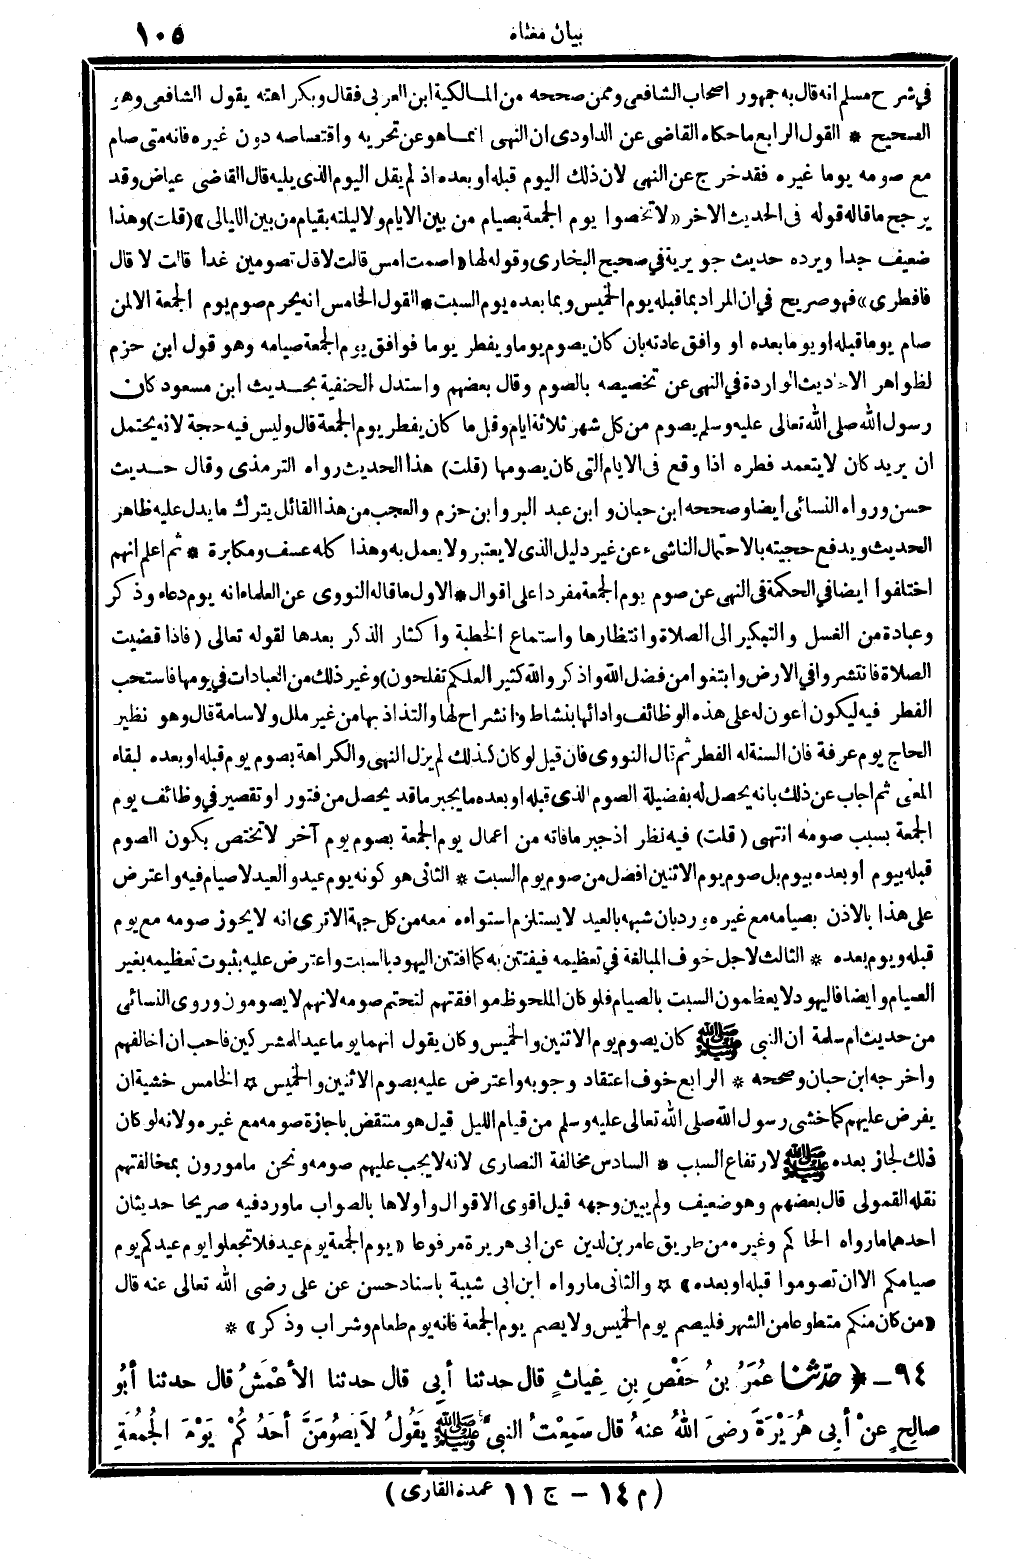 بيان مغثاه
١٠٥
في شرح مسلم انه قال به جمهور اصحاب الشافعي وممن صححه من المالكية ابن العربي فقال وبكراهته يقول الشافعي وهو
الصحيح * القول الرابع ما حكاه القاضي عن الداودي ان النهي انما هو عن تحريه واقتصاصه دون غيره فانه متى صام
مع صومه يوما غيره فقد خرج عن النهي لان ذلك اليوم قبله او بعده اذ لم يقل اليوم الذي يليه قال القاضي عياض وقد
يرجح ما قاله قوله في الحديث الآخر «لا تخصوا يوم الجمعة بصيام من بين الايام ولا ليلته بقيام من بين الليالي» (قلت) وهذا
ضعيف جدا ويرده حديث جويرية في صحيح البخاري وقوله لها «اصمت امس قالت لا قال تصومين غدا قالت لا قال
فافطري» فهو صريح في ان المراد بما قبله يوم الخميس وبما بعده يوم السبت * القول الخامس انه يحرم صوم يوم الجمعة الا لمن
صام يوما قبله او يوما بعده او وافق عادته بان كان يصوم يوما ويفطر يوما فوافق يوم الجمعة صيامه وهو قول ابن حزم
لظواهر الاحاديث الواردة في النهي عن تخصيصه بالصوم وقال بعضهم واستدل الحنفية بحديث ابن مسعود كان
رسول الله صلى الله تعالى عليه وسلم يصوم من كل شهر ثلاثة ايام وقل ما كان يفطر يوم الجمعة قال وليس فيه حجة لانه يحتمل
ان يريد كان لا يتعمد فطره اذا وقع في الايام التي كان يصومها (قلت) هذا الحديث رواه الترمذي وقال حديث
حسن ورواه النسائي ايضا وصححه ابن حبان وابن عبد البر وابن حزم والعجب من هذا القائل يترك ما يدل عليه ظاهر
الحديث ويدفع حجيته بالاحتمال الناشيء عن غير دليل الذي لا يعتبر ولا يعمل به وهذا كله عسف ومكابرة * ثم اعلم انهم
اختلفوا ايضا في الحكمة في النهي عن صوم يوم الجمعة مفردا على اقوال * الاول ما قاله النووي عن العلماء انه يوم دعاء وذكر
وعبادة من الغسل والتبكير الى الصلاة وانتظارها واستماع الخطبة واكثار الذكر بعدها لقوله تعالى (فاذا قضيت
الصلاة فانتشروا في الارض وابتغوا من فضل الله واذكروا الله كثيرا لعلكم تفلحون) وغير ذلك من العبادات في يومها فاستحب
الفطر فيه ليكون اعون له على هذه الوظائف وادائها بنشاط وانشراح لها والتذاذ بها من غير ملل ولا سامة قال وهو نظير
الحاج يوم عرفة فان السنة له الفطر ثم قال النووي فان قيل لو كان كذلك لم يزل النهي والكراهة بصوم يوم قبله او بعده لبقاء
المعنى ثم اجاب عن ذلك بانه يحصل له بفضيلة الصوم الذي قبله او بعده ما يجبر ما قد يحصل من فتور او تقصير في وظائف يوم
الجمعة بسبب صومه انتهى (قلت) فيه نظر اذ جبر ما فاته من اعمال يوم الجمعة بصوم يوم آخر لا تختص بكون الصوم
قبله بيوم أو بعده بيوم بل صوم يوم الاثنين افضل من صوم يوم السبت * الثاني هو كونه يوم عيد والعيد لا صيام فيه واعترض
على هذا بالاذن بصيامه مع غيره ورد بان شبهه بالعيد لا يستلزم استواءه معه من كل جهة الا ترى انه لا يجوز صومه مع يوم
قبله ويوم بعده * الثالث لاجل خوف المبالغة في تعظيمه فيفتتن به كما افتتن اليهود بالسبت واعترض عليه بثبوت تعظيمه بغير
الصيام وايضا فاليهود لا يعظمون السبت بالصيام فلو كان الملحوظ موافقتهم لتحتم صومه لانهم لا يصومون وروى النسائي
من حديث ام سلمة ان النبي ﷺ كان يصوم يوم الاثنين والخميس وكان يقول انهما يوما عيد المشركين فاحب ان اخالفهم
واخرجه ابن حبان وصححه * الرابع خوف اعتقاد وجوبه واعترض عليه بصوم الاثنين والخميس * الخامس خشية ان
يفرض عليهم كما خشى رسول الله صلى الله تعالى عليه وسلم من قيام الليل قيل هو منتقض باجازة صومه مع غيره ولانه لو كان
ذلك لجاز بعده ﷺ لارتفاع السبب * السادس مخالفة النصارى لانه لا يجب عليهم صومه ونحن مامورون بمخالفتهم
نقله القمولي قال بعضهم وهو ضعيف ولم يبين وجهه قيل اقوى الاقوال واولاها بالصواب ما ورد فيه صريحا حديثان
احدهما ما رواه الحاكم وغيره من طريق عامر بن لدين عن ابي هريرة مرفوعا «يوم الجمعة يوم عيد فلا تجعلوا يوم عيدكم يوم
صيامكم الا ان تصوموا قبله او بعده» * والثاني ما رواه ابن ابي شيبة باسناد حسن عن علي رضى الله تعالى عنه قال
«من كان منكم متطوعا من الشهر فليصم يوم الخميس ولا يصم يوم الجمعة فانه يوم طعام وشراب وذكر» *
٩٤ - ﴿ حدّثنا عُمَرُ بنُ حَفْصِ بنِ غِياثٍ قال حدثنا أبي قال حدثنا الأعْمَشُ قال حدثنا أبُو
صالِحٍ عنْ أبِي هُرَيْرَةَ رضىَ اللهُ عنهُ قال سَمِعْتُ النبيَّ ﷺ يَقُولُ لاَ يَصُومَنَّ أحَدُكُمْ يَوْمَ الجُمُعَةِ
(م ١٤ - ج ١١ عمدة القاري)